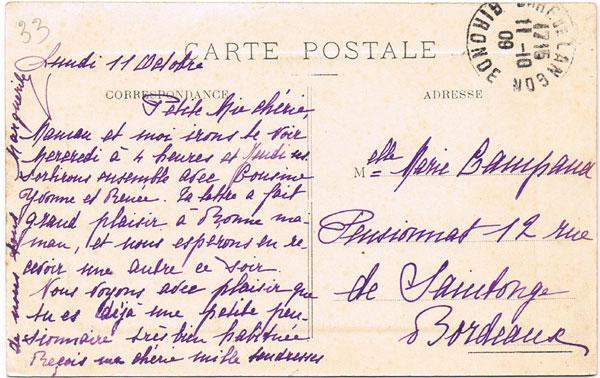 33
Lundi 11 Octobre
CARTE POSTALE
CORRESPONDANCE
Petite Mie chérie,
Maman et moi irons te voir
Mercredi à 4 heures et Jeudi ns
sortirons ensemble avec Cousine
Yvonne et Renée. Ta lettre a fait
grand plaisir à Bonne ma-
man, et nous espérons en re-
cevoir une autre ce soir.
Nous voyons avec plaisir que
tu es déjà une petite pen-
sionnaire très bien habituée
Reçois ma chérie mille tendresses
de nous tous Marguerite
ADRESSE
Melle Marie
Pensionnat 12 rue
de Saintonge
Bordeaux
LANGON
17 15
11-10
09
GIRONDE